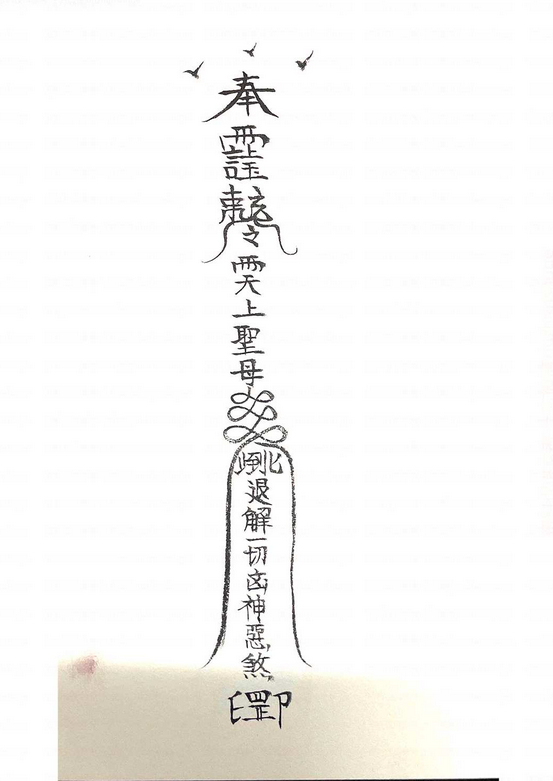 奉
天上聖母
退解一切凶神惡煞
罡